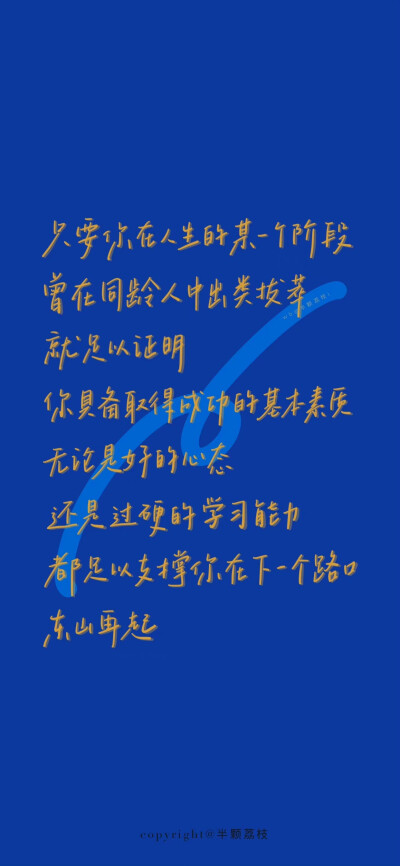 只要你在人生的某一个阶段
曾在同龄人中出类拔萃
就足以证明
你具备取得成功的基本素质
无论是好的心态
还是过硬的学习能力
都足以支撑你在下一个路口
东山再起
copyright@半颗荔枝